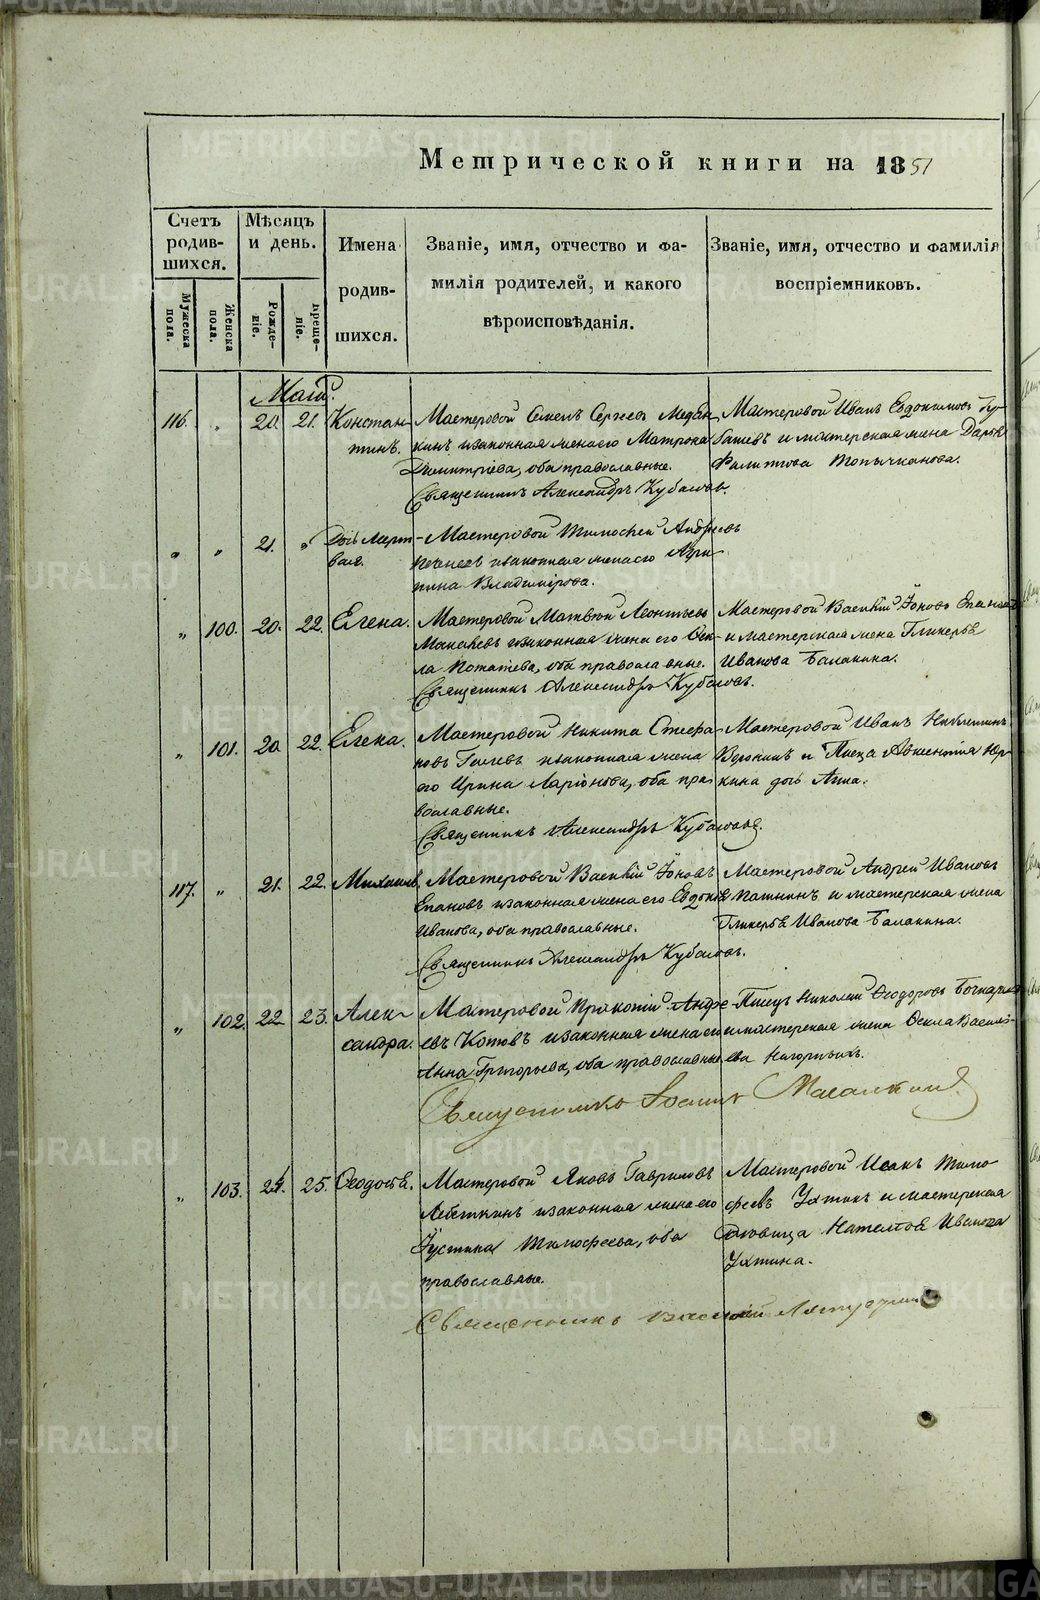 METRIKI.GASO-URAL.RU
Метрической книги на 1851
Счетъ родив-шихся.
Мужеска пола.
Женска пола.
Мѣсяцъ и день.
Рожде-ніе.
Креще-ніе.
Имена родив-шихся.
Званіе, имя, отчество и фа-
милія родителей, и какого
вѣроисповѣданія.
Званіе, имя, отчество и фамилія
воспріемниковъ.
Маій.
116. " 20. 21. Констан-
тинъ.
Мастеровой Семенъ Сергѣевъ
кинъ изаконная жена его Матрона
Димитріева, оба православные.
Священникъ Александръ Кубасовъ.
Мастеровой Иванъ Евдокимовъ
и мастерская жена Дарья
Филипова Топычканова.
" " 21. " Дочь мерт-
вая.
Мастеровой Тимоѳей Андреевъ
изаконная жена его Агри-
пина Владимірова.
" 100. 20. 22. Елена.
Мастеровой Матвѣй Леонтьевъ
изаконная жена его Ѳек-
ла Потапева, оба православные.
Священникъ Александръ Кубасовъ.
Мастеровой Василій Іоновъ Епановъ
и мастерская жена Гликерья
Иванова Балакина.
" 101. 20 22. Елена.
Мастеровой Никита Стефа-
новъ Гилевъ изаконная жена
его Ирина Ларіонова, оба пра-
вославные.
Священникъ Александръ Кубасовъ.
Мастеровой Иванъ
Воронинъ и Писца
кина дочь Анна.
117. " 21. 22. Михаилъ.
Мастеровой Василій Іоновъ
Епановъ изаконная жена его Евдокія
Иванова, оба православные.
Священникъ Александръ Кубасовъ.
Мастеровой Андрей Ивановъ
и мастерская жена
Гликерья Иванова Балакина.
" 102. 22 23. Алек-
сандра.
Мастеровой Прокопій Андре-
евъ Котовъ изаконная жена его
Анна Григорьева, оба православные
Священникъ Іоаннъ
Писецъ Николай Ѳеодоровъ
и мастерская жена Ѳекла Василь-
ева Нагорныхъ.
" 103. 24. 25. Ѳеодосія.
Мастеровой Яковъ Гавриловъ
Лебеткинъ изаконная жена его
Іустина Тимофеева, оба
православные.
Священникъ Василій
Мастеровой Исакъ Тимо-
феевъ Ухтинъ и мастерская
вдовица Наталія Иванова
Ухтина.